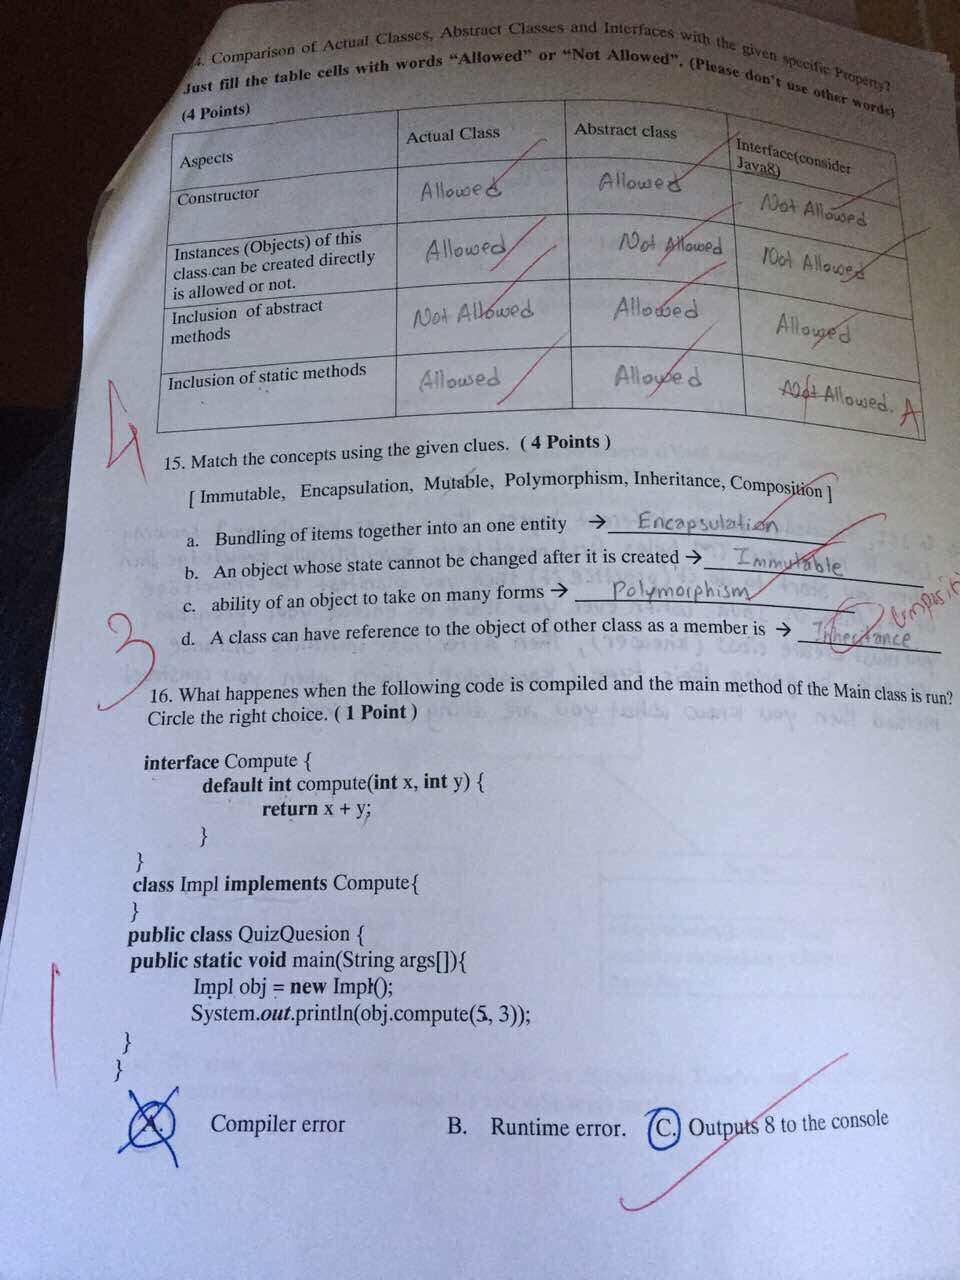 4. Comparison of Actual Classes, Abstract Classes and Interfaces with the given specific Property?
Just fill the table cells with words “Allowed” or “Not Allowed”. (Please don't use other words)
(4 Points)
Aspects
Actual Class
Abstract class
Interface(consider
Java8)
Constructor
Allowed
Allowed
Not Allowed
Instances (Objects) of this
class can be created directly
is allowed or not.
Allowed
Not Allowed
Not Allowed
Inclusion of abstract
methods
Not Allowed
Allowed
Allowed
Inclusion of static methods
Allowed
Allowed
Not Allowed. A
4
15. Match the concepts using the given clues. ( 4 Points )
[ Immutable, Encapsulation, Mutable, Polymorphism, Inheritance, Composition ]
a. Bundling of items together into an one entity → Encapsulation
b. An object whose state cannot be changed after it is created → Immutable
c. ability of an object to take on many forms → Polymorphism
d. A class can have reference to the object of other class as a member is → Inheritance
3
16. What happenes when the following code is compiled and the main method of the Main class is run?
Circle the right choice. ( 1 Point )
interface Compute {
default int compute(int x, int y) {
return x + y;
}
}
class Impl implements Compute{
}
public class QuizQuesion {
public static void main(String args[]){
Impl obj = new Impl();
System.out.println(obj.compute(5, 3));
}
}
1
A. Compiler error B. Runtime error. C. Outputs 8 to the console